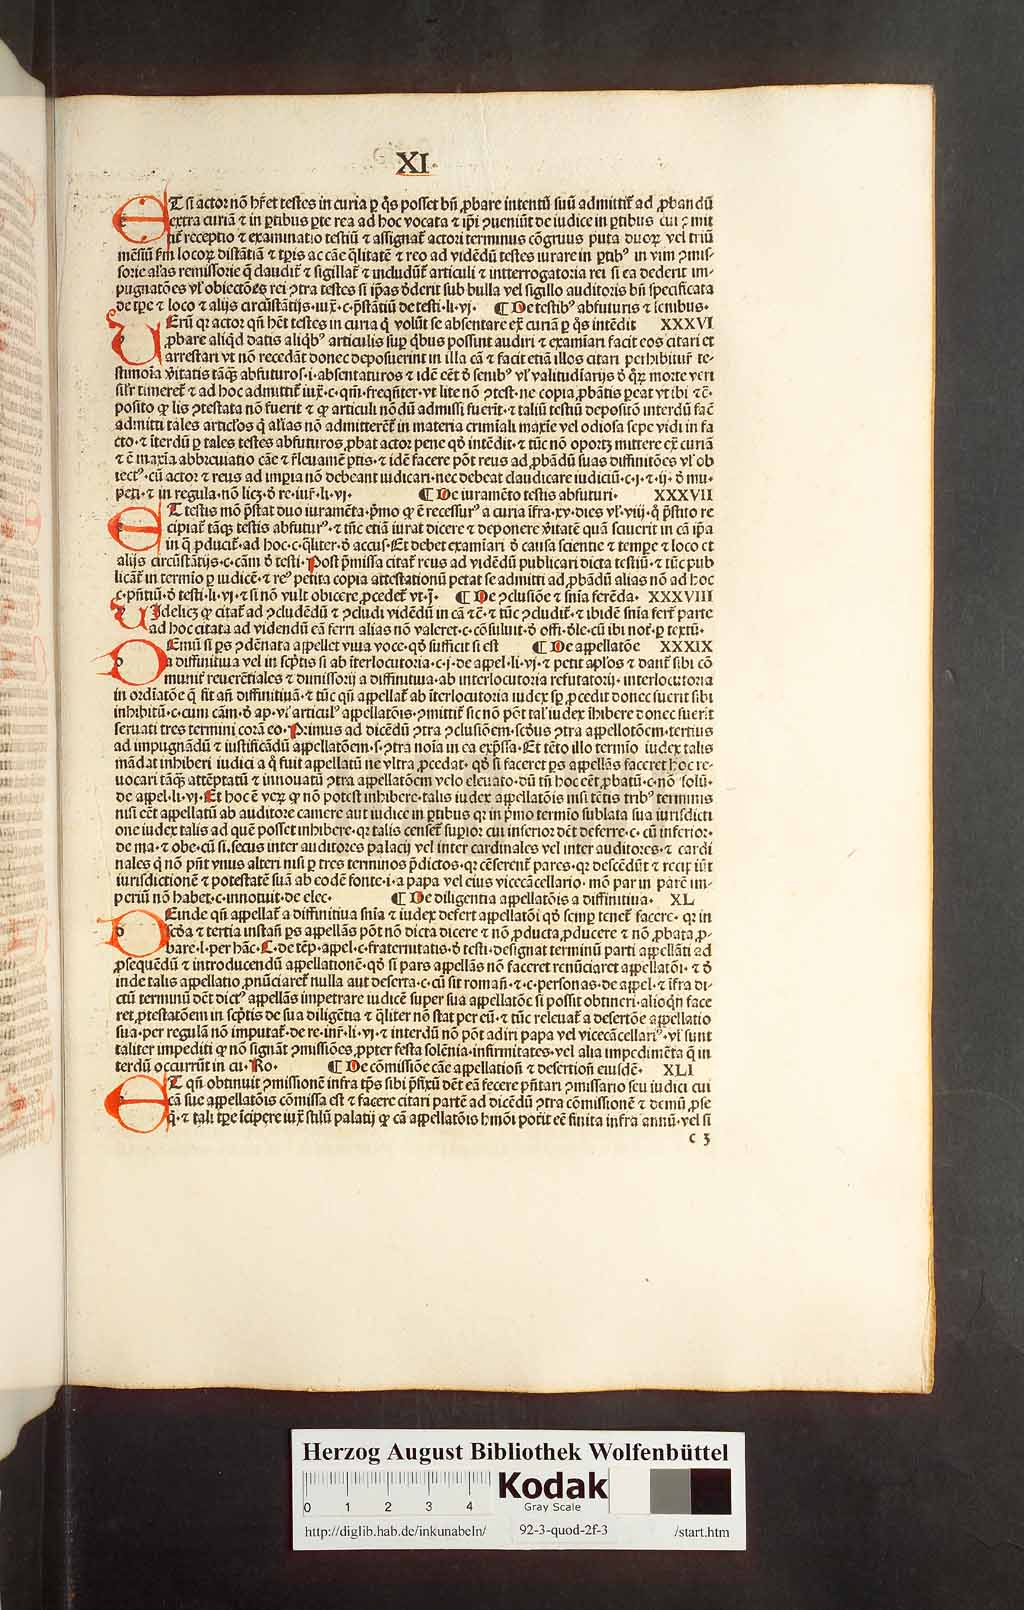 XI
ET si actor nõ hr̃et testes in curia ꝑ q̃s posset bñ ꝓbare intentũ suũ admittit̃ ad ꝓbandũ
extra curiã ⁊ in ꝑtibus ꝑte rea ad hoc vocata ⁊ ip̃i ꝯueniũt de iudice in ꝑtibus cui ꝯmit
tit̃ receptio ⁊ examinatio testiũ ⁊ assignat̃ actori terminus cõgruus puta duoꝝ vel triũ
mẽsiũ ẜm locoꝝ distãtiã ⁊ tp̃is ac cãe q̃litatẽ ⁊ reo ad vidẽdũ testes iurare in ꝑtibꝰ in vim ꝯmis-
sorie al̃as remissorie q̃ claudit̃ ⁊ sigillat̃ ⁊ includũt̃ articuli ⁊ intterrogatoria rei si ea dederit im-
pugnatões vl̃ obiectões rei ꝯtra testes si ip̃as d̾derit sub bulla vel sigillo auditoris bñ specificata
de tp̃e ⁊ loco ⁊ alijs circũstãtijs·iux̃·c·p̃stãtiũ de testi·li·vj· ¶ De testibꝰ abfuturis ⁊ senibus·
UErũ qꝛ actor qñ hẽt testes in curia q̃ volũt se absentare ex̃ curiã ꝑ q̃s intẽdit XXXVI
ꝓbare aliq̃d datis aliq̃bꝰ articulis suꝑ q̃bus possint audiri ⁊ examĩari facit eos citari et
arrestari vt nõ recedãt donec deposuerint in illa cã ⁊ facit etiã illos citari perhibitur̃ te-
stimoĩa v̾itatis tãq̃ abfuturos·i·absentaturos ⁊ idẽ eẽt d̾ senibꝰ vl̃ valitudĩarijs d̾ q̃ꝝ morte veri
sil̃r timeret̃ ⁊ ad hoc admittit̃ iux̃·c·qm̃·freq̃nter·vt lite nõ ꝯtest·ne copia ꝓbãtis ꝑeat vt ibi ⁊c̃·
posito ꝙ lis ꝯtestata nõ fuerit ⁊ ꝙ articuli nõdũ admissi fuerit·⁊ taliũ testiũ depositõ interdũ fac̃
admitti tales artic̃los q̃ al̃ias nõ admitteret̃ in materia crimĩali maxĩe vel odiosa sepe vidi in fa
cto·⁊ ĩterdũ ꝑ tales testes abfuturos ꝓbat actor pene qd̾ intẽdit·⁊ tũc nõ oportꝫ mittere ex̃ curiã
⁊ ẽ maxĩa abbreuiatio cãe ⁊ r̃leuamẽ ꝑtis·⁊ idẽ facere põt reus ad ꝓbãdũ suas diffinitões vl̃ ob
iectꝰ·cũ actor ⁊ reus ad imꝑia nõ debeant iudicari·nec debeat claudicare iudiciũ·c·j·⁊·ij·d̾ mu·
peti·⁊ in regula·nõ licꝫ·d̾ re·iur̃·li·vj· ¶ De iuramẽto testis abfuturi· XXXVII
ET testis mõ p̃stat duo iuramẽta·p̃mo ꝙ ẽ recessurꝰ a curia ĩfra·xv·dies vl̃·viij·q̃ p̃stito re
cipiat̃ tãq̃ testis abfuturꝰ·⁊ tũc etiã iurat dicere ⁊ deponere v̾itatẽ quã sciuerit in cã ip̃a
in q̃ ꝓducit̃·ad hoc·c·q̃liter·d̾ accus·Et debet examĩari d̾ causa scientie ⁊ tempe ⁊ loco et
alijs circũstãtijs·c·cãm d̾ testi·Post p̃missa citat̃ reus ad vidẽdũ publicari dicta testiũ·⁊ tũc pub
licãt̃ in termĩo ꝑ iudicẽ·⁊ reꝰ petita copia attestationũ petat se admitti ad ꝓbãdũ alias nõ ad hoc
·c·pñtiũ·d̾ testi·li·vj·⁊ si nõ vult obicere ꝓcedet̃ vt·j̃· ¶ De ꝯclusiõe ⁊ sñia ferẽda· XXXVIII
UIdelicꝫ ꝙ citat̃ ad ꝯcludẽdũ ⁊ ꝯcludi vidẽdũ in cã ⁊c̃·⁊ tũc ꝯcludit̃·⁊ ibidẽ sñia fert̃ parte
ad hoc citata ad videndũ eã ferri alias nõ valeret·c·cõsuluit·d̾ offi·d̾le·cũ ibi not̃·ꝑ textũ·
DEmũ si ꝑs ꝯdẽnata appellet viua voce·qd̾ sufficit si est ¶ De appellatõe XXXIX
a diffinitiua vel in scp̃tis si ab ĩterlocutoria·c·j·de appel·li·vj·⁊ petit apl̃os ⁊ dant̃ sibi cõ
muniť reuerẽtiales ⁊ dimissorij a diffinitiua·ab interlocutoria refutatorij·interlocutoria
in ordĩatõe q̃ fit añ diffinitiuã·⁊ tũc qñ appellat̃ ab ĩterlocutoria iudex sp̃ ꝓcedit donec fuerit sibi
inhibitũ·c·cum cãm·d̾ ap·vl̃ articulꝰ appellatõis·ꝯmittit̃ sic nõ põt tal̃ iudex ĩhibere donec fuerit
seruati tres termini corã eo·Primus ad dicẽdũ ꝯtra ꝯclusiõem·scd̾us ꝯtra appellotõem·tertius
ad impugnãdũ ⁊ iustificãdũ appellatõem·s·ꝯtra noĩa in ea exp̃ssa·Et tẽto illo termĩo iudex talis
mãdat inhiberi iudici a q̃ fuit appellatũ ne vltra ꝓcedat·qd̾ si faceret ꝑs appellãs faceret hoc re-
uocari tãq̃ attẽptatũ ⁊ innouatũ ꝯtra appellatõem velo eleuato·dũ tñ hoc eẽt ꝓbatũ·c·nõ solũ·
de appel·li·vj·Et hoc ẽ veꝝ ꝙ nõ potest inhibere·talis iudex appellatõis nisi tẽtis tribꝰ terminis
nisi eẽt appellatũ ab auditore camere aut iudice in ꝑtibus qꝛ in p̃mo termĩo sublata sua iurisdicti
one iudex talis ad quẽ posset inhibere·qꝛ talis censet̃ suꝑior cui inferior dẽt deferre·c·cũ inferior·
de ma·⁊ obe·cũ si·secus inter auditores palacij vel inter cardinales vel inter auditores·⁊ cardi
nales q̃ nõ pñt vnus alteri nisi ꝑ tres terminos p̃dictos·qꝛ cẽserent̃ pares·qꝛ descẽdũt ⁊ recipiũt
iurisdictionẽ ⁊ potestatẽ suã ab eodẽ fonte·i·a papa vel eius vicecãcellario·mõ par in parẽ im-
periũ nõ habet·c·innotuit·de elec· ¶ De diligentia appellatõis a diffinitiua· XL
DEinde qñ appellat̃ a diffinitiua sñia ⁊ iudex defert appellatõi qd̾ semꝑ tenet̃ facere·qꝛ in
scd̾a ⁊ tertia instañ ꝑs appellãs põt nõ dicta dicere ⁊ nõ ꝓducta ꝓducere ⁊ nõ ꝓbata ꝓ-
bare·l·per hãc·C·de tẽp·appel·c·fraternitatis·d̾ testi·designat terminũ parti appellãti ad
ꝓsequẽdũ ⁊ introducendũ appellationẽ·qd̾ si pars appellãs nõ faceret renũciaret appellatõi·⁊ d̾
inde talis appellatio ꝓnũciaret̃ nulla aut deserta·c·cũ sit romañ·⁊·c·personas·de appel·⁊ ĩfra di-
ctũ terminũ dẽt dictꝰ appellãs impetrare iudicẽ super sua appellatõe si possit obtineri·alioq̃n face
ret ꝓtestatõem in scp̃tis de sua diligẽtia ⁊ q̃liter nõ stat per eũ·⁊ tũc releuat̃ a desertõe appellatio
sua·per regulã nõ imputat̃·de re·iur̃·li·vj·⁊ interdũ nõ põt adiri papa vel vicecãcellariꝰ·vl̃ sunt
taliter impediti ꝙ nõ signãt ꝯmissiões ꝓpter festa solẽnia·infirmitates·vel alia impedimẽta q̃ in
terdũ occurrũt in cu·Ro· ¶ De cõmissiõe cãe appellatioñ ⁊ desertioñ eiusdẽ· XLI
ET qñ obtinuit ꝯmissionẽ infra tp̃s sibi p̃fixũ dẽt eã fecere p̃ntari ꝯmissario seu iudici cui
cã sue appellatõis cõmissa est ⁊ facere citari partẽ ad dicẽdũ ꝯtra cõmissionẽ ⁊ demũ ꝓse
q̃·⁊ tali tp̃e ĩcipere iux̃ stilũ palatij ꝙ cã appellatõis hmõi potit eẽ finita infra annũ·vel si
c 3
Herzog August Bibliothek Wolfenbüttel
0 1 2 3 4
Kodak
Gray Scale
http://diglib.hab.de/inkunabeln/ 92-3-quod-2f-3 /start.htm